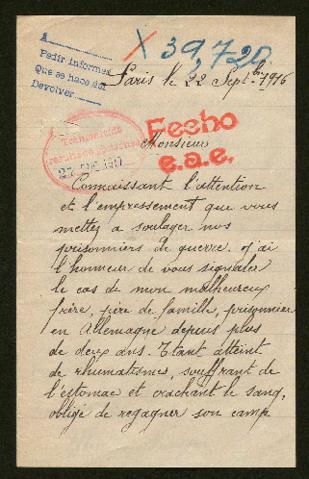 A
Pedir informes
Que se hace así
Devolver
X 39,720.
Paris le 22 Sept.bre 1916
Fecho
e.a.e.
Monsieur
Connaissant l'attention
et l'empressement que vous
mettez a soulager nos
prisonniers de guerre. J'ai
l'honneur de vous signaler
le cas de mon malheureux
frère, père de famille, prisonnier
en Allemagne depuis plus
de deux ans. Etant atteint
de rhumatismes, souffrant de
l'estomac et crachant le sang,
obligé de regagner son camp